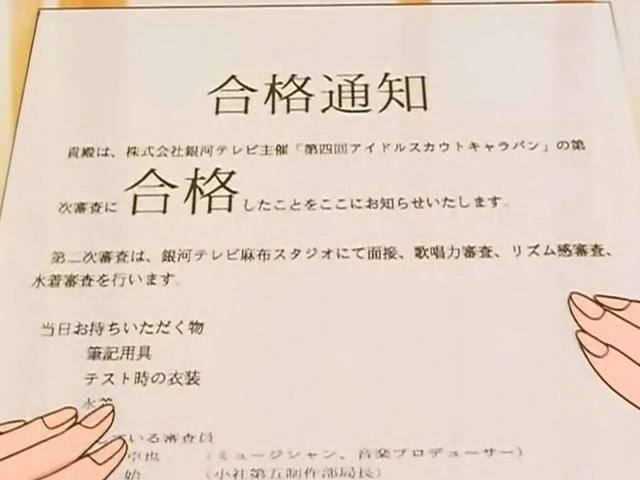 合格通知
貴殿は、株式会社銀河テレビ主催「第四回アイドルスカウトキャラバン」の第
次審査に 合格したことをここにお知らせいたします。
第二次審査は、銀河テレビ麻布スタジオにて面接、歌唱力審査、リズム感審査、
水着審査を行います。
当日お持ちいただく物
筆記用具
テスト時の衣装
水着
ている審査員
（ミュージシャン、音楽プロデューサー）
始 （小社第五制作部局長）